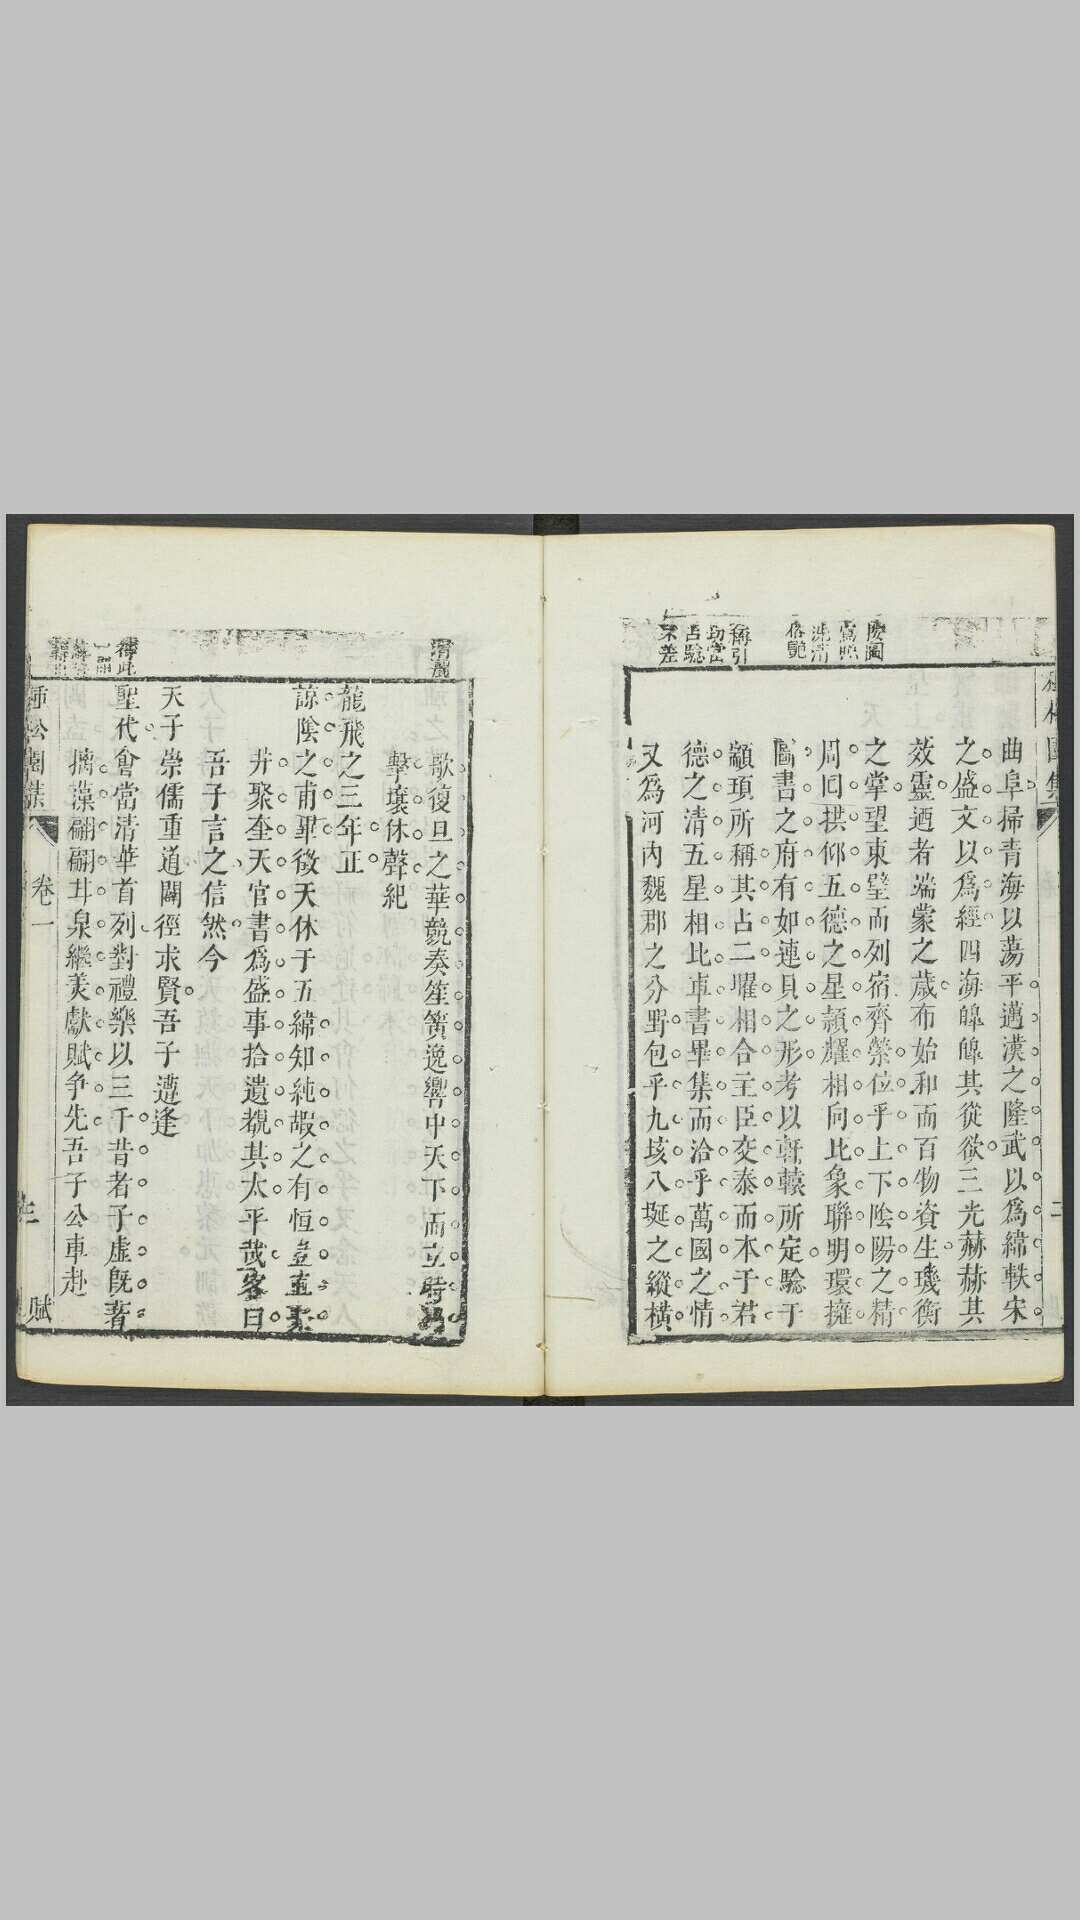 曲阜掃青海以蕩平邁漢之隆武以爲緯軼宋
之盛文以爲經四海皥皥其從欲三光赫赫其
效靈迺者端蒙之歲布始和而百物資生璣衡
之掌望東壁而列宿齊縈位乎上下陰陽之精
周囘拱仰五德之星頴耀相向比象聯明環擁
圖書之府有如連貝之形考以軒轅所定驗于
顓頊所稱其占二曜相合主臣交泰而本于君
德之清五星相比車書畢集而洽乎萬國之情
又爲河內魏郡之分野包乎九垓八埏之縱橫
歌復旦之華競奏笙簧逸響中天下而立時
擊壤休聲紀
龍飛之三年正
諒陰之甫畢徵天休于五緯知純嘏之有恒豈直
井聚奎天官書爲盛事拾遺覩其太平哉客曰
吾子言之信然今
天子崇儒重道闢徑求賢吾子遭逢
聖代會當清華首列對禮樂以三千昔者子虛旣著
摛藻翩翩井泉繼美獻賦争先吾子公車赴
園集
卷一
賦